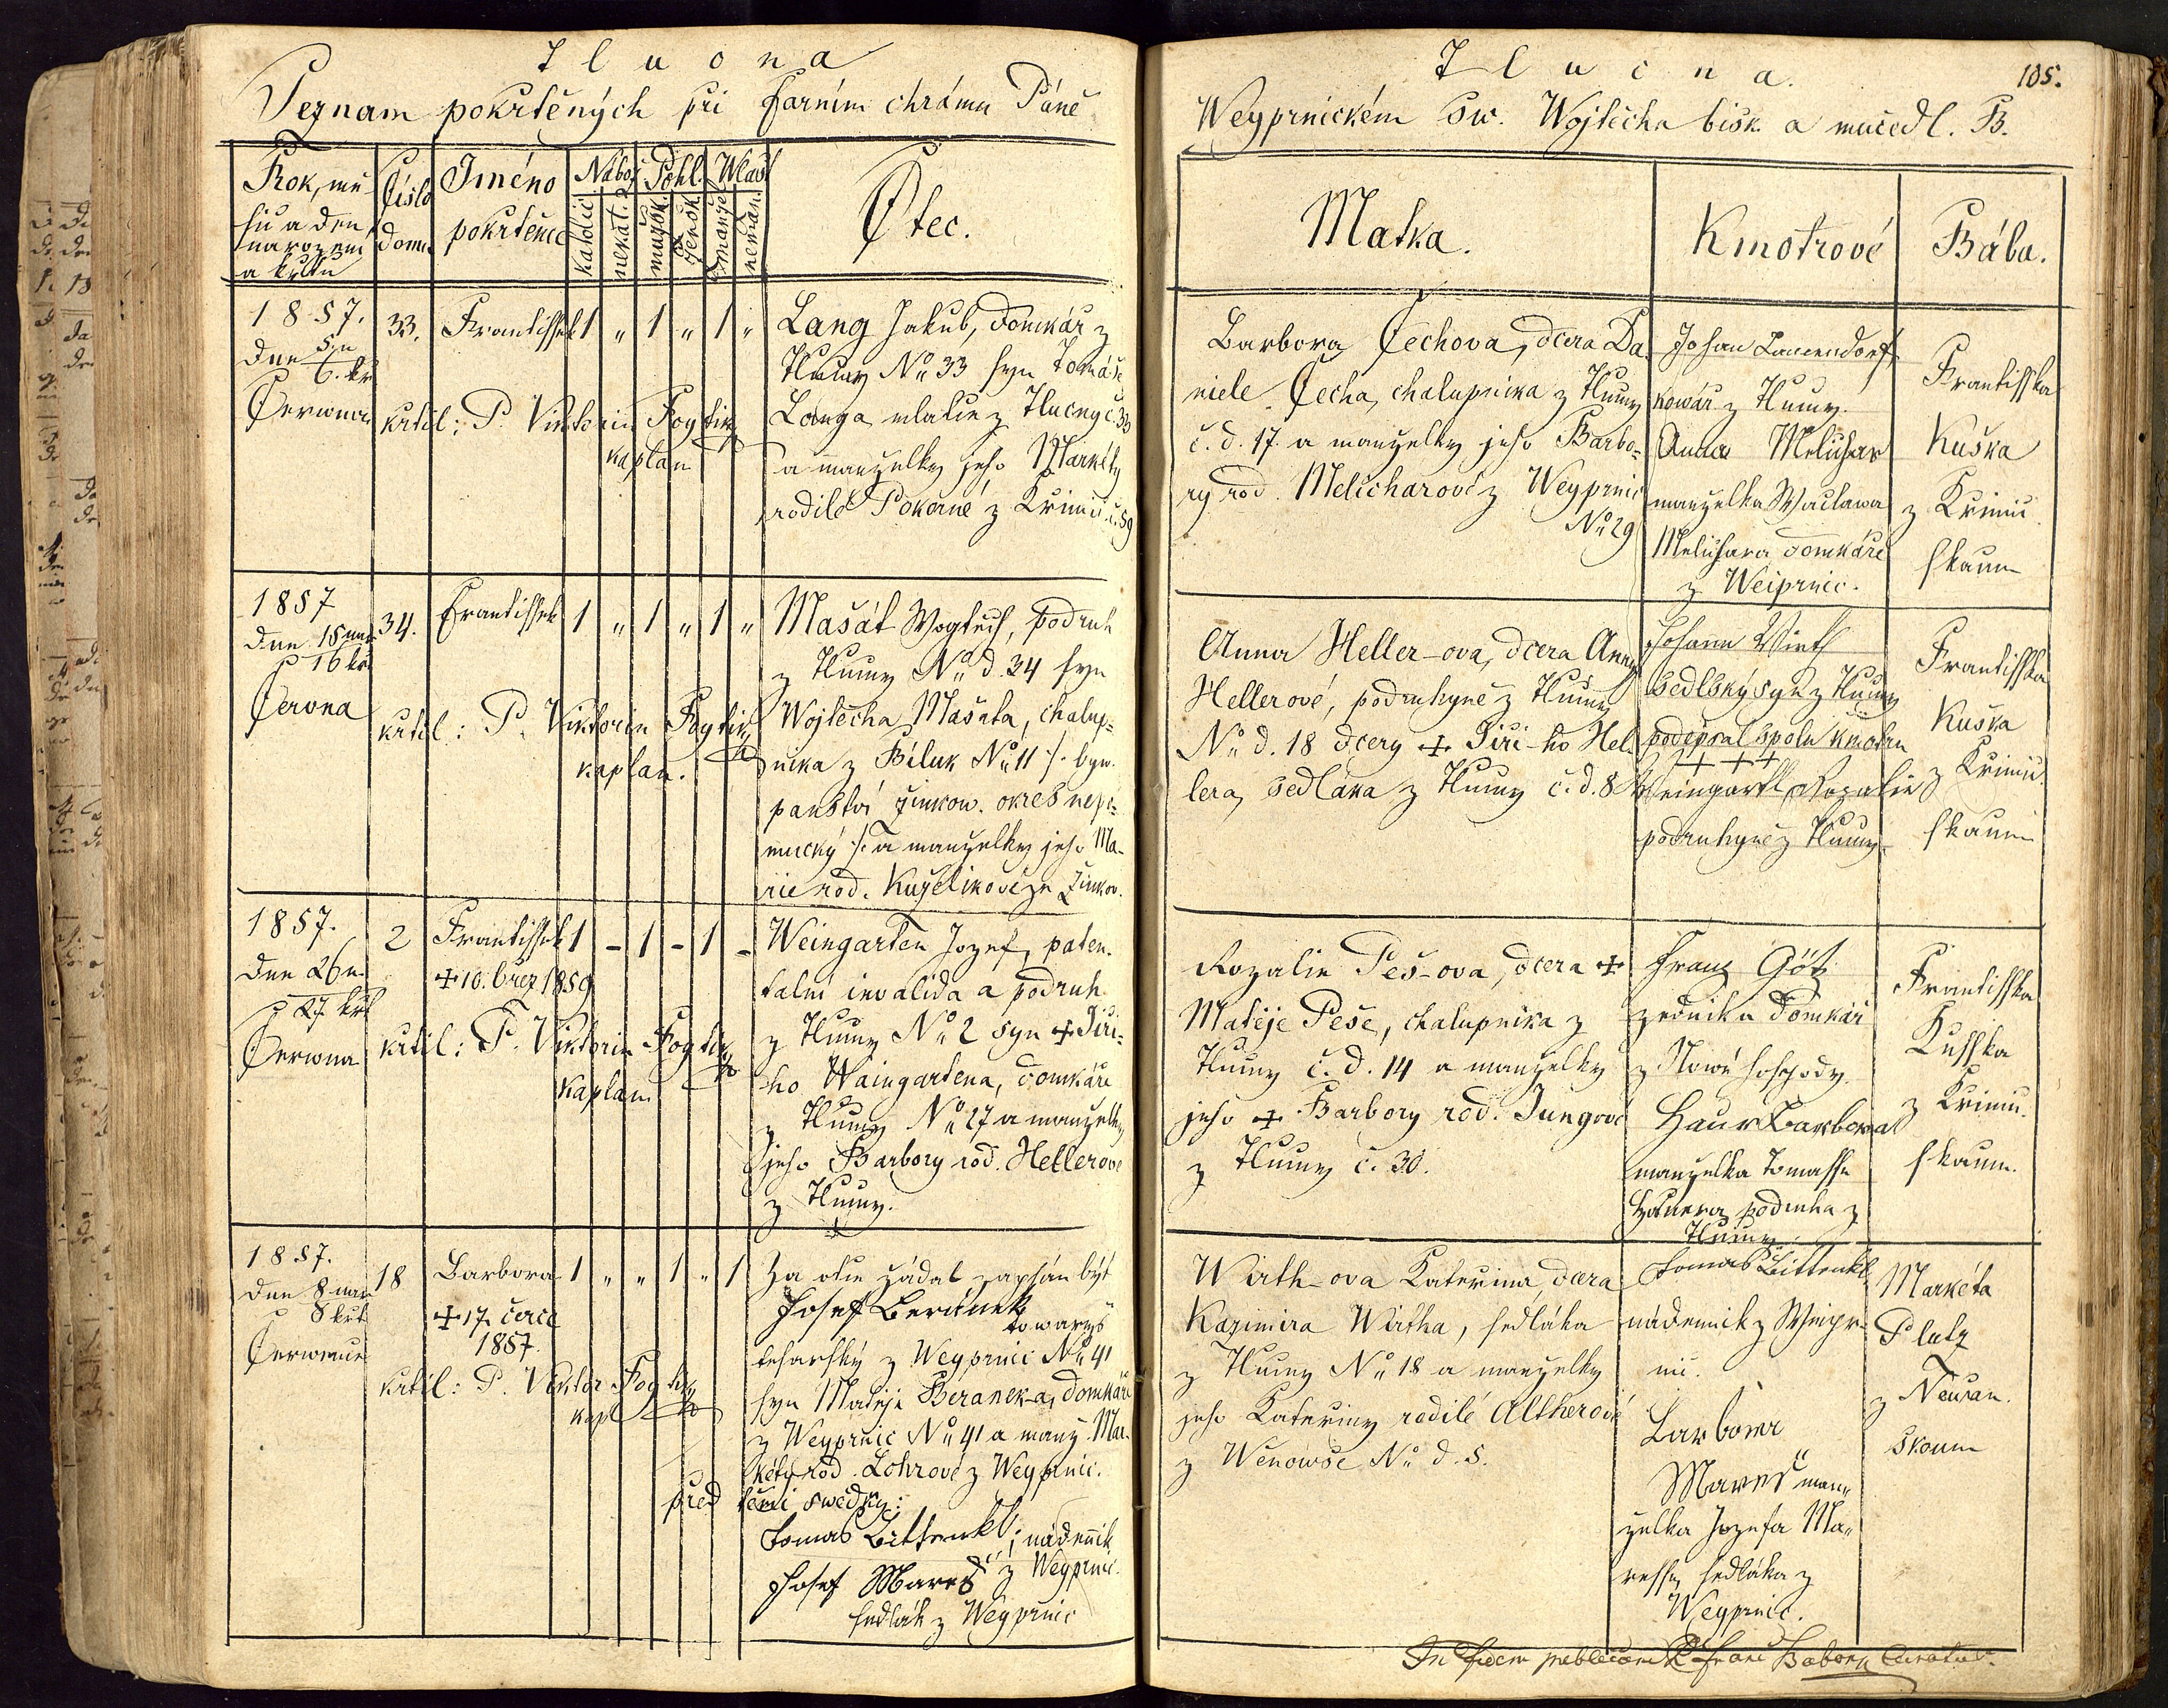 Tlucna
Seznam pokrtěných při Farním chrámu Páně
Rok, mě-
síc a den
narození
a křtu
Číslo
domu
Jméno
pokrtěnce
Nábož.
Pohl.
Wlast
katolic.
nekat.
mužsk.
žensk.
manžel.
neman.
Otec.
1857.
dne 5. n.
6. kř.
Červena
33.
Frantissek
1 " 1 " 1 "
krtil: P. Viktorin Fogtik
kaplan
Lang Jakub, domkář z
Tlucny No 33 syn Tomáše
Langa z Tlucny č. 33
a manzelky jeho Markéty
rodilé Pokorné z Křimic č. 59
1857
dne 15 nar.
16 kř.
Června
34.
Frantissek
1 " 1 " 1 "
krtil: P. Viktorin Fogtik
kaplan.
Mašát Wogtech, podruh
z Tlucny No d. 34 syn
Wojtěcha Mašáta, chalup-
níka z Bíluk No 11 /: byw.
panství žinkow. okres nepo-
mucký :/ a manzelky jeho Ma-
rie rod. Kuželikové ze Žinkov.
1857.
dne 26 n.
27 křt.
Čerwna
2
Frantissek
1 - 1 - 1 -
+ 10. břez 1859
krtil: P. Viktorin Fogtik
kaplan
Weingarten Jozef, paten-
talní invalida a podruh
z Tlucny No 2 syn + Jiří-
ho Waingartena, domkáře
z Tlucny No 27 a manzelky
jeho Barbory rod. Hellerové
z Tlucny.
1857.
dne 8 nar.
8 křt
Čerwence
18
Barbora
1 " " 1 " 1
+ 17. čerce
1857.
krtil: P. Viktor Fogtik
kapl.
Za otce žádal zapsán být
Josef Beránek
towaryš
tesařský z Weyprnic No 41
syn Matěje Beranek-a, domkáře
z Weyprnic No 41 a manž. Mar-
kéty rod. Lohrové z Weyprnic.
před těmi swědky:
Tomas Bittenkl; nádenník
z Weyprnic.
Josef Mareš
sedlák z Weyprnic
Tlucna.
105.
Weyprnickém sw. Wojtěcha bisk. a mučedl. B.
Matka.
Kmotrové
Bába.
Barbora Čechova, dcera Da
niele Čecha, chalupnika z Tlucny
č. d. 17. a manzelky jeho Barbo-
ry rod. Melicharové z Weyprnic
No 29
Johan Lauendorf
kowář z Tlucny.
Anna Melichar
manzelka Waclawa
Melichara domkáře
z Weiprnic.
Frantisska
Kuška
z Křimic
skaum
Anna Heller-ova, dcera Anny
Hellerové, podruhyně z Tlucny
No d. 18 dcery + Jiří-ho Hel-
lera, sedláka z Tlucny č. d. 8
Johann Wirth
sedlský syn z Tlucny
podepsal spolu kmotru
+ + +
Weingartl Rozalie
podruhyně z Tlucny
Frantisska
Kuška
z Křimic
skaum
Rozalie Peš-ova, dcera +
Matěje Peše, chalupnika z
Tlucny č. d. 14 a manzelky
jeho + Barbory rod. Jungové
z Tlucny č. 30.
Franz Götz
zednika domkář
z Nowé hospody.
Haur Barbora
manzelka Tomasse
Hauera podruha z
Tlucny.
Frantisska
Kusska
z Křimic.
skaum.
Wirth-ova Kateřina, dcera
Kazimira Wirtha, sedláka
z Tlucny No 18 a manzelky
jeho Kateřiny rodilé Altherové
z Wenowse No d. 5.
Tomas Bittenkl
nádenník z Weipr-
nic.
Barbora
Mareš man-
zelka Jozefa Ma-
resse, sedláka z
Weyprnic.
Markéta
Platz
z Neusan.
skoum
In fidem publicam P. Franc Baborn Curatus.